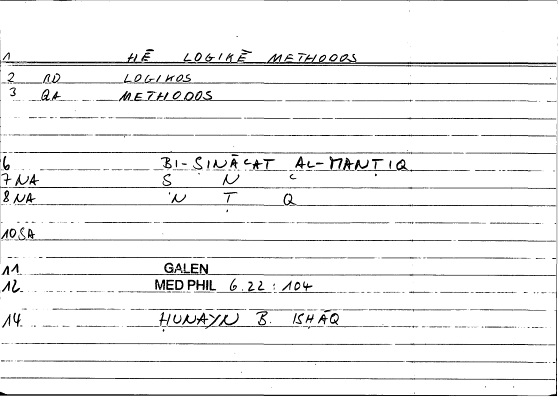 1 HĒ LOGIKĒ METHODOS
2 AD LOGIKOS
3 QA METHODOS
6 BI-ṢINĀʿAT AL-MANṬIQ
7 NA Ṣ N ʿ
8 NA N Ṭ Q
10 SA
11 GALEN
12 MED PHIL 6.22 : 104
14 ḤUNAYN B. ISḤĀQ